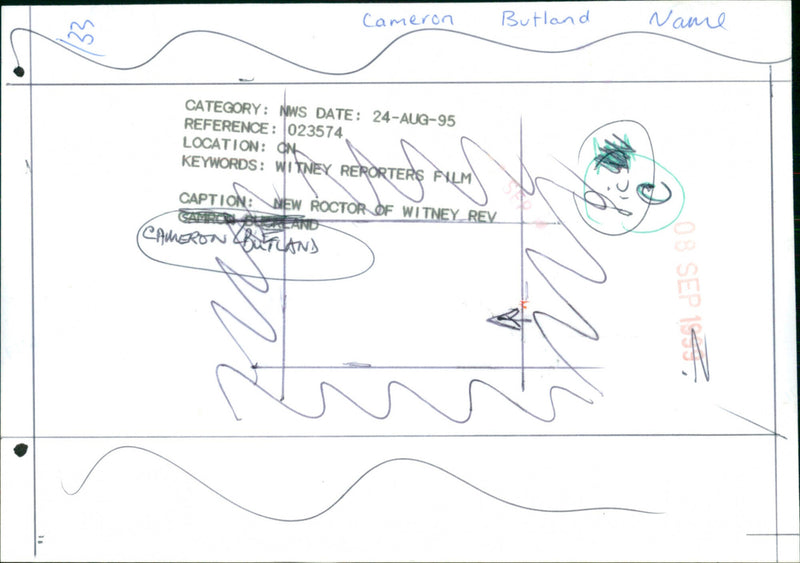 133
Cameron Butland Name
CATEGORY: NWS DATE: 24-AUG-95
REFERENCE: 023574
LOCATION: CN
KEYWORDS: WITNEY REPORTERS FILM
CAPTION: NEW ROCTOR OF WITNEY REV
CAMERON BUTLAND
Pic
C
SEP
08 SEP 1995